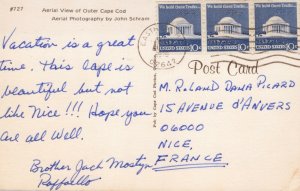 #727 Aerial View of Outer Cape Cod
Aerial Photography by John Schram
Vacation is a great
time. This cape is
beautiful but not
like Nice!!! Hope you
are all well.
Brother Jack Mostyn
Raffaello
Post Card
M. ROLAND DANA PICARD
15 AVENUE D'ANVERS
06000
NICE,
FRANCE
We hold these Truths...
10c
UNITED STATES
We hold these Truths...
10c
UNITED STATES
We hold these Truths...
10c
UNITED STATES
02642